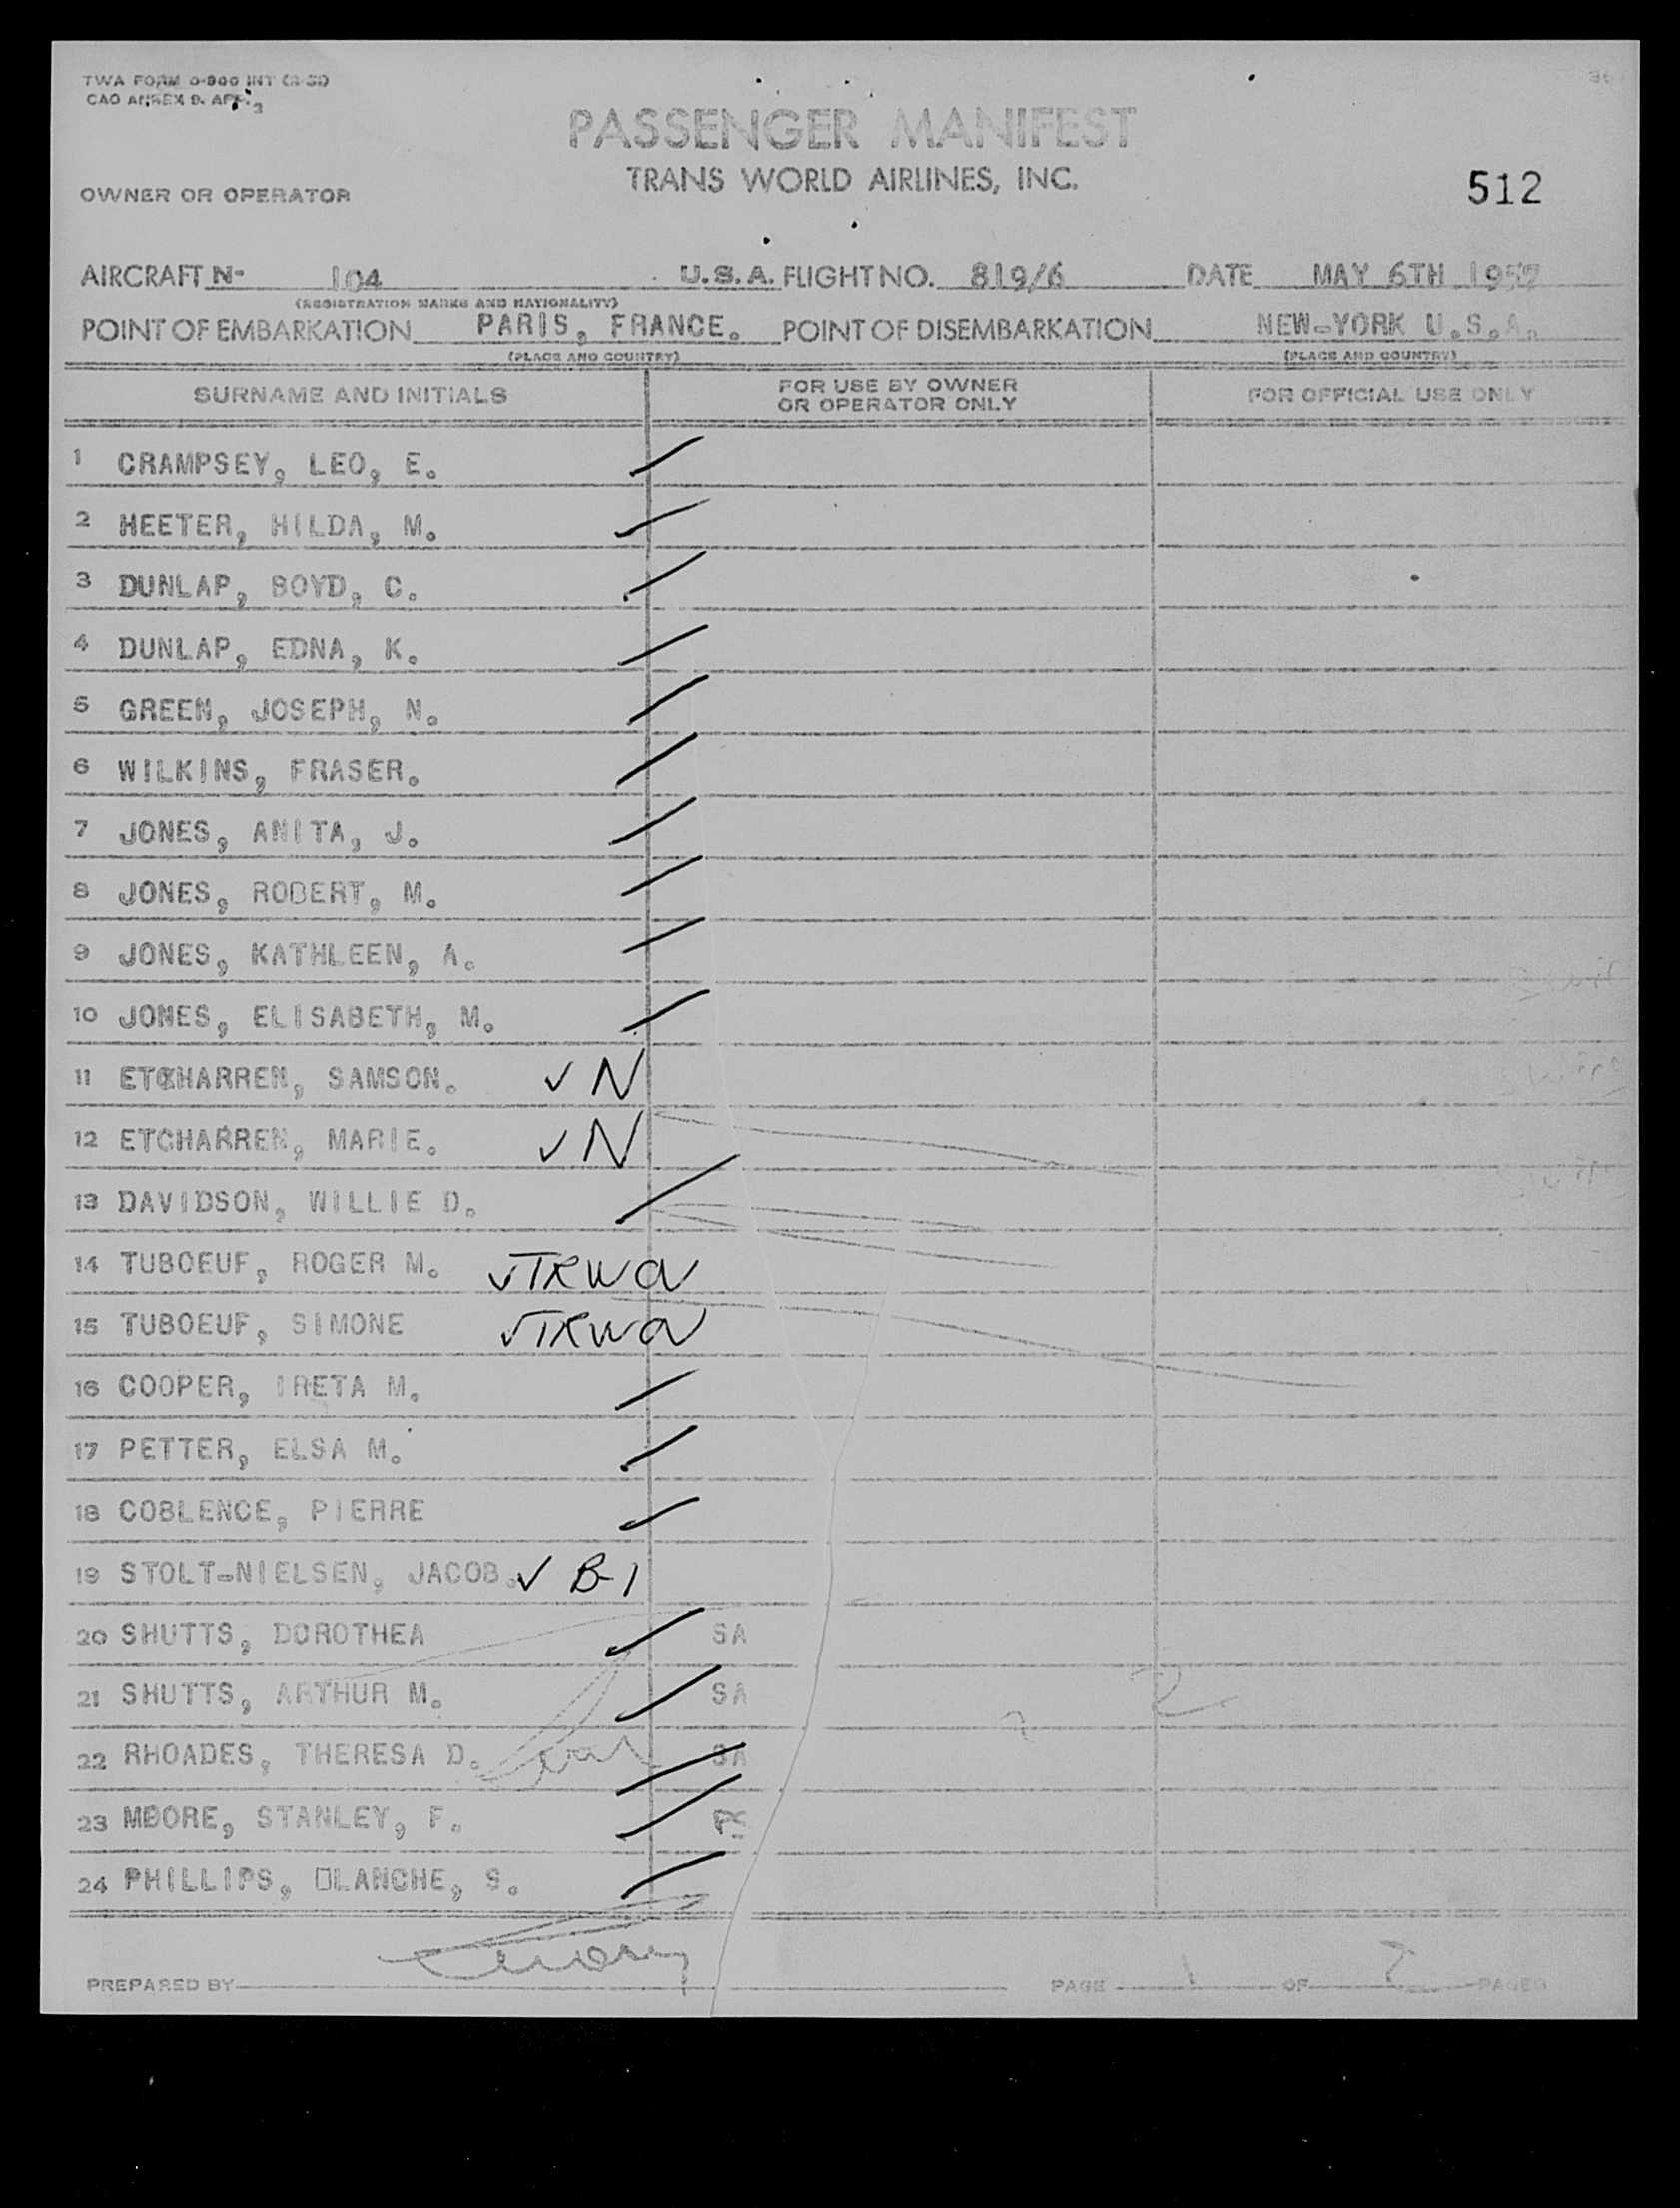 TWA FORM 0-900 INT
CAO ANNEX 9. APP. 3
PASSENGER MANIFEST
TRANS WORLD AIRLINES, INC.
OWNER OR OPERATOR
512
AIRCRAFT N- 104 U.S.A. FLIGHT NO. 819/6 DATE MAY 6TH 1957
(REGISTRATION MARKS AND NATIONALITY)
POINT OF EMBARKATION PARIS, FRANCE. POINT OF DISEMBARKATION NEW-YORK U.S.A.
(PLACE AND COUNTRY) (PLACE AND COUNTRY)
SURNAME AND INITIALS FOR USE BY OWNER OR OPERATOR ONLY FOR OFFICIAL USE ONLY
1 CRAMPSEY, LEO, E.
2 HEETER, HILDA, M.
3 DUNLAP, BOYD, C.
4 DUNLAP, EDNA, K.
5 GREEN, JOSEPH, N.
6 WILKINS, FRASER.
7 JONES, ANITA, J.
8 JONES, ROBERT, M.
9 JONES, KATHLEEN, A.
10 JONES, ELISABETH, M.
11 ETCHARREN, SAMSON. ✓ N
12 ETCHARREN, MARIE. ✓ N
13 DAVIDSON, WILLIE D.
14 TUBOEUF, ROGER M. ✓TRWOV
15 TUBOEUF, SIMONE ✓TRWOV
16 COOPER, IRETA M.
17 PETTER, ELSA M.
18 COBLENCE, PIERRE
19 STOLT-NIELSEN, JACOB. ✓ B-1
20 SHUTTS, DOROTHEA SA
21 SHUTTS, ARTHUR M. SA
22 RHOADES, THERESA D. SA
23 MOORE, STANLEY, F. PS
24 PHILLIPS, BLANCHE, S.
PREPARED BY PAGE 1 OF 7 PAGES